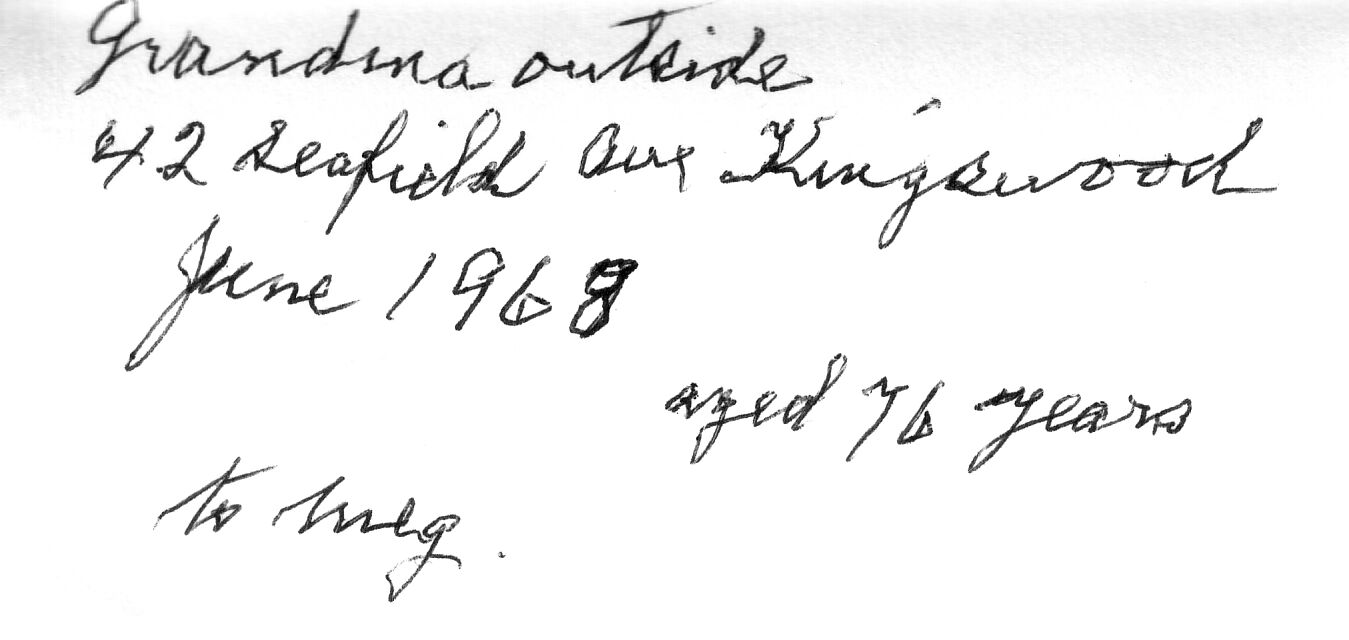 Grandma outside
42 Seafield Ave Kingswood
June 1968
aged 76 years
to Meg.